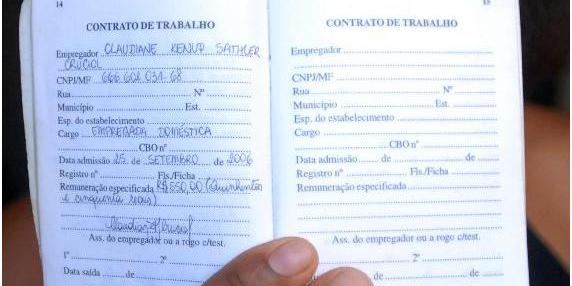 14
CONTRATO DE TRABALHO
Empregador CLAUDIANE KENUP SATHLER
CRUCIOL
CNPJ/MF 666 601 031-68
Rua Nº
Município Est.
Esp. do estabelecimento
Cargo EMPREGADA DOMÉSTICA
CBO nº
Data admissão 25 de SETEMBRO de 2006
Registro nº Fls./Ficha
Remuneração especificada R$ 550,00 (Quinhentos
e cinquenta reais)
Ass. do empregador ou a rogo c/test.
1º 2º
Data saída de
15
CONTRATO DE TRABALHO
Empregador
CNPJ/MF
Rua Nº
Município Est.
Esp. do estabelecimento
Cargo
CBO nº
Data admissão de de
Registro nº Fls./Ficha
Remuneração especificada
Ass. do empregador ou a rogo c/test.
2º
de de